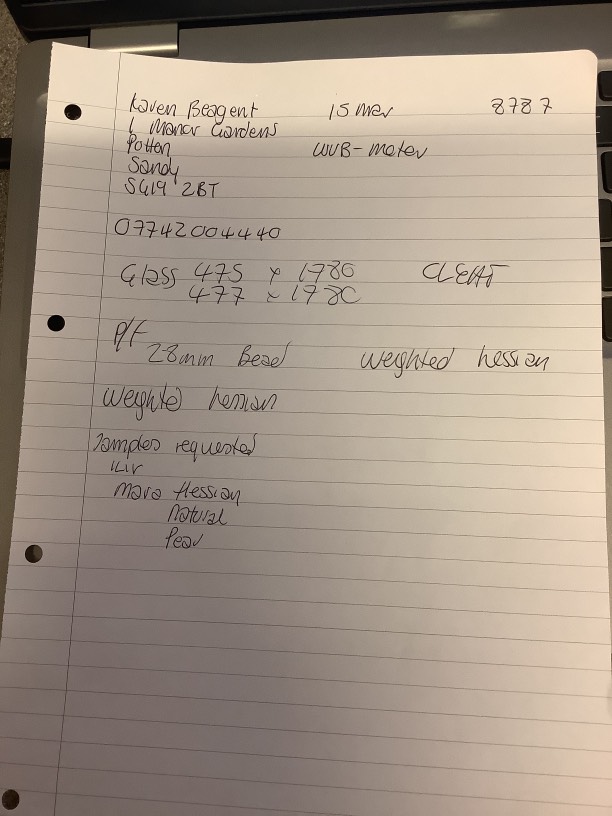 Karen Beagent 15 Mar 8787
1 Manor Gardens
Potton WUB-Meter
Sandy
SG19 2BT
07742004440
Glass 475 x 1780 CLEAT
477 x 1780
P/F
28mm Bead weighted hessian
Weighted hessian
Samples requested
Mara Hessian
Natural